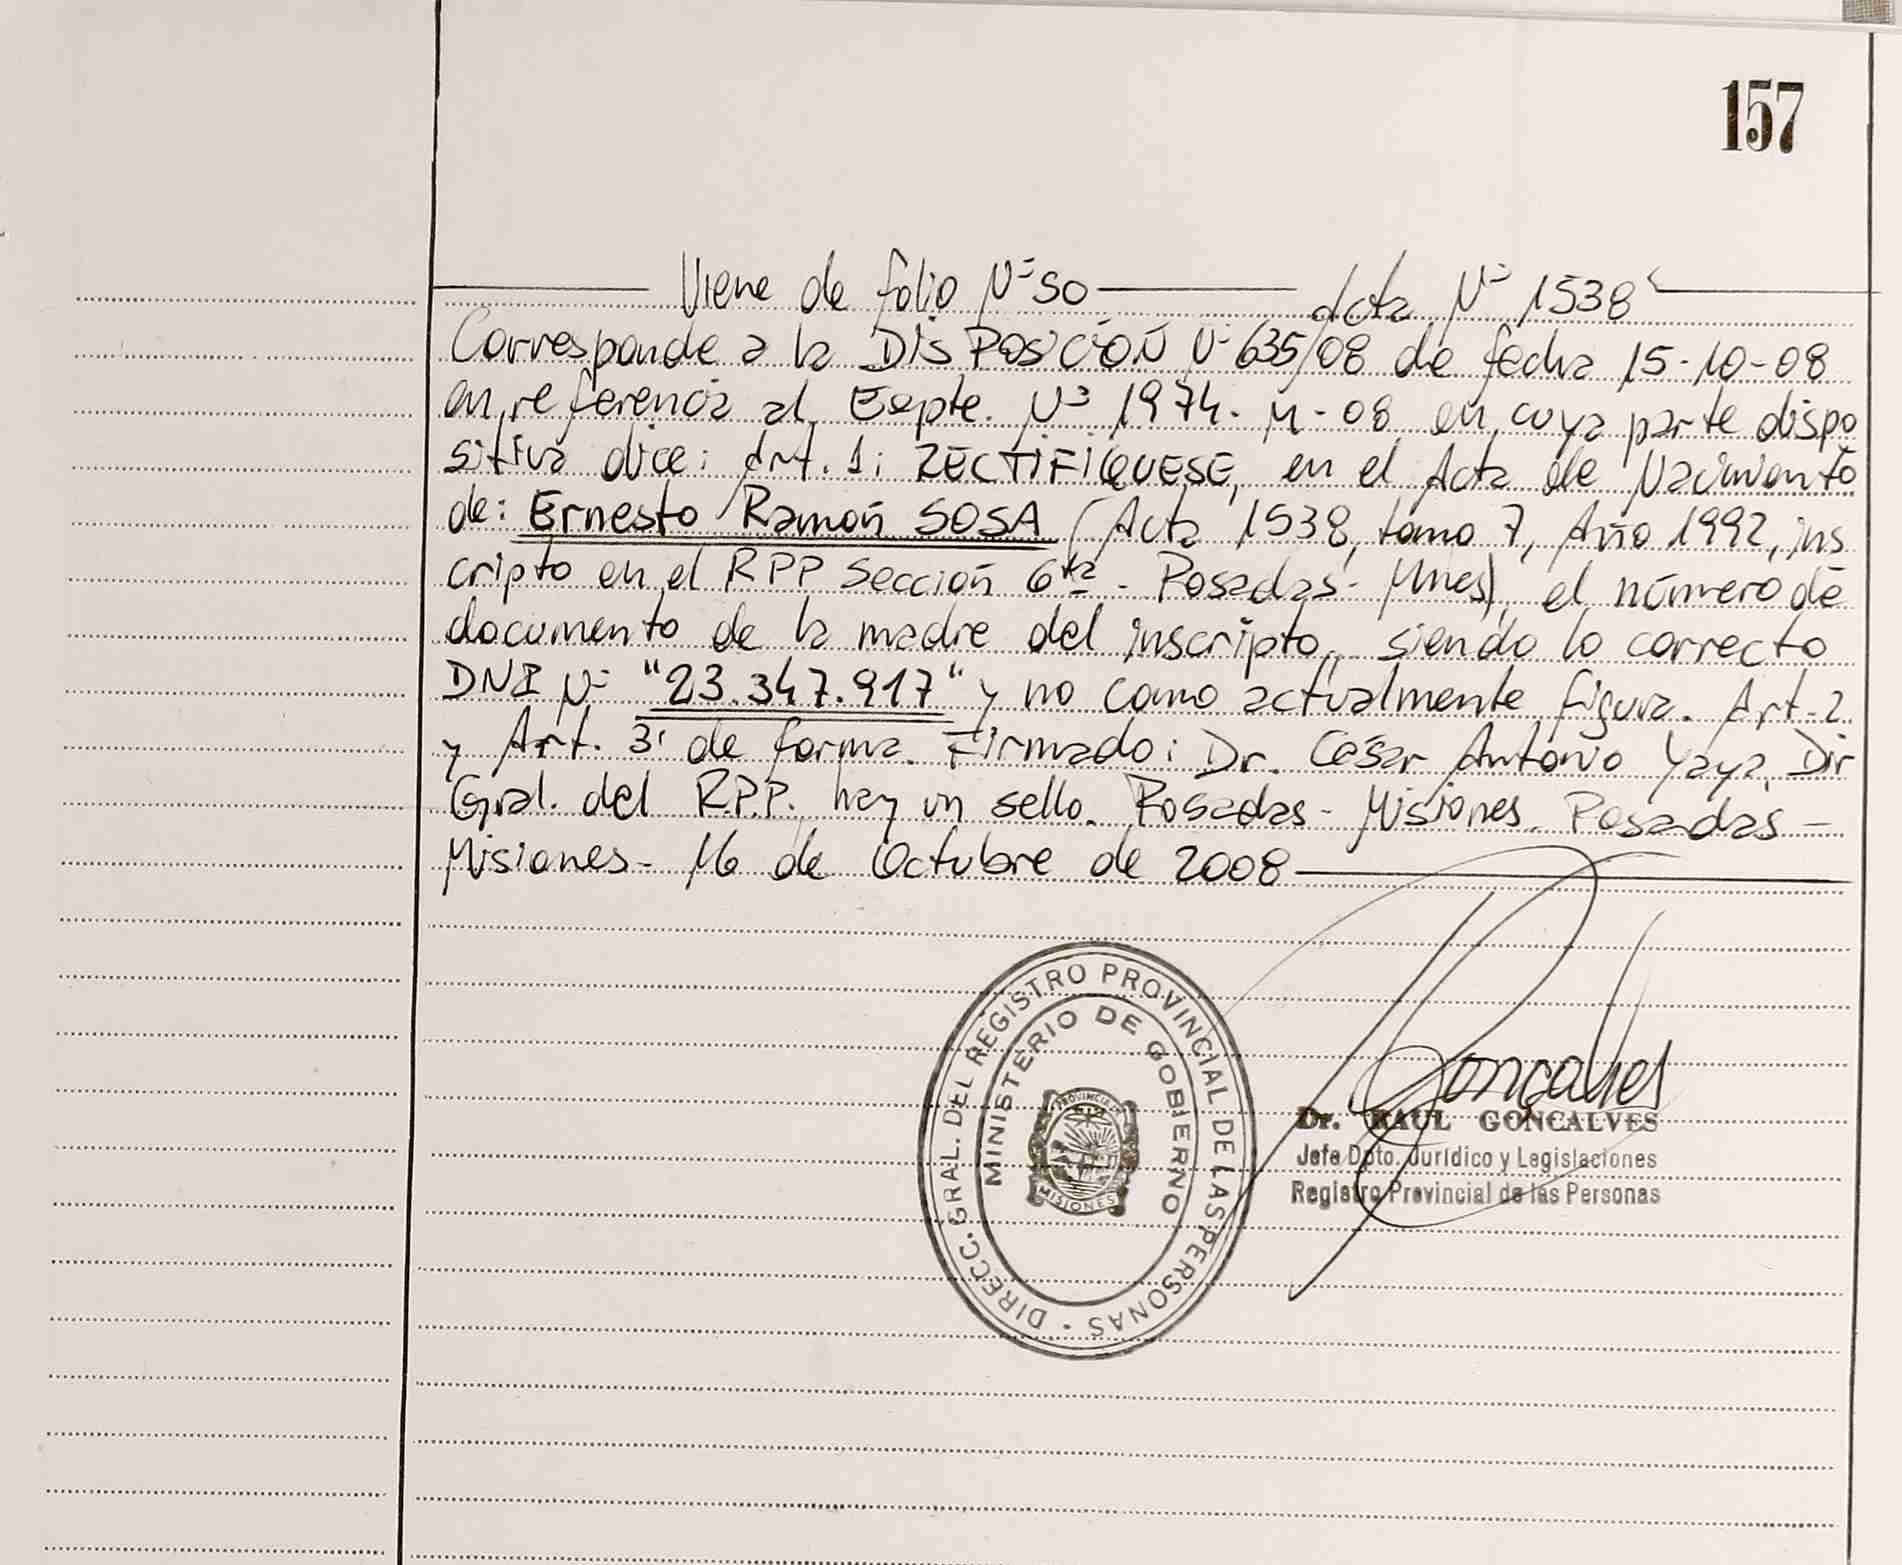 157
Viene de folio Nº 50 Acta Nº 1538
Corresponde a la DISPOSICIÓN Nº 635/08 de fecha 15-10-08
en referencia al Expte. Nº 1974-M-08 en cuya parte dispo
sitiva dice: Art. 1: RECTIFIQUESE, en el Acta de Nacimiento
de: Ernesto Ramón SOSA (Acta 1538, tomo 7, Año 1992, ins
cripto en el RPP Sección 6ta - Posadas - Mnes), el número de
documento de la madre del inscripto, siendo lo correcto
DNI Nº "23.347.917" y no como actualmente figura. Art. 2
y Art. 3: de forma. Firmado: Dr. César Antonio Yaya, Dir
Gral. del R.P.P. hay un sello. Posadas - Misiones. Posadas -
Misiones - 16 de Octubre de 2008
DIRECC. GRAL. DEL REGISTRO PROVINCIAL DE LAS PERSONAS
MINISTERIO DE GOBIERNO
PROVINCIA DE
MISIONES
Gonçalves
Dr. RAUL GONCALVES
Jefe Dpto. Jurídico y Legislaciones
Registro Provincial de las Personas